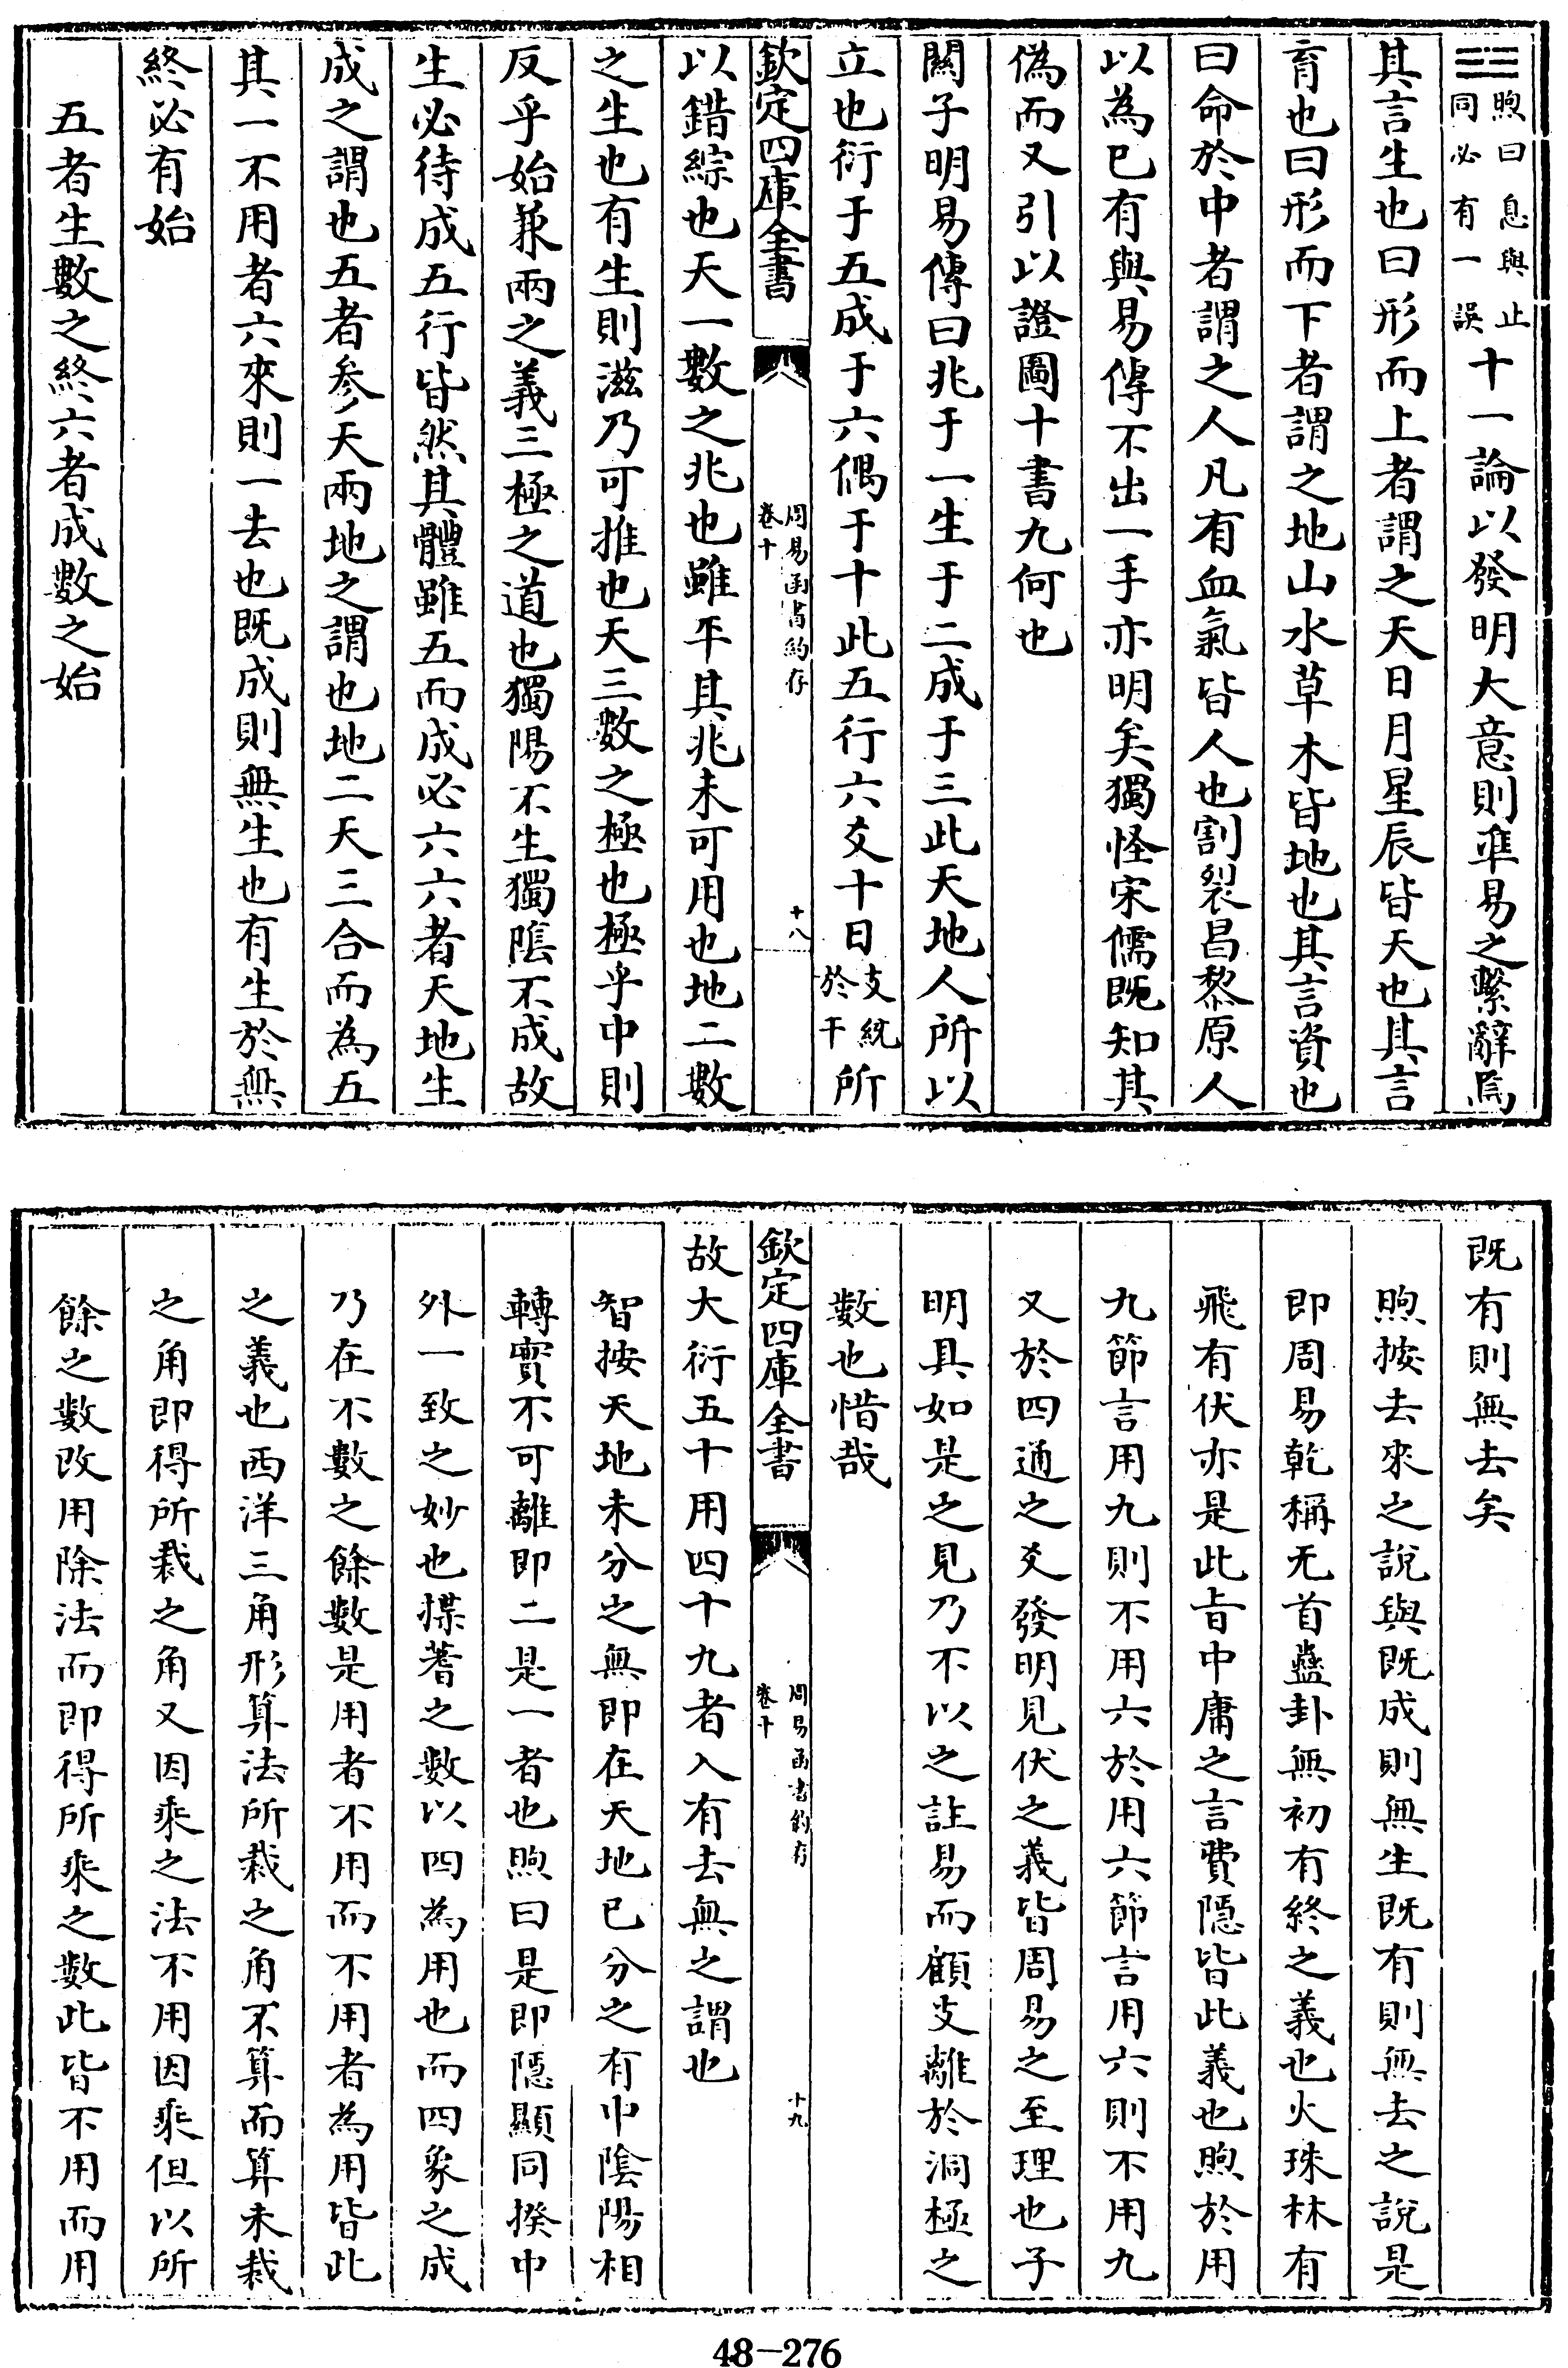 ䷀煦曰息與止同必有一誤十一論以發明大意則準易之繫辭焉
其言生也曰形而上者謂之天日月星辰皆天也其言
育也曰形而下者謂之地山水草木皆地也其言資也
曰命於中者謂之人凡有血氣皆人也割裂昌黎原人
以為已有與易傳不出一手亦明矣獨怪宋儒既知其
偽而又引以證圖十書九何也
關子明易傳曰兆于一生于二成于三此天地人所以
立也衍于五成于六偶于十此五行六爻十日支統於干所
欽定四庫全書
周易函書約存
卷十
十八
以錯綜也天一數之兆也雖平其兆未可用也地二數
之生也有生則滋乃可推也天三數之極也極乎中則
反乎始兼兩之義三極之道也獨陽不生獨陰不成故
生必待成五行皆然其體雖五而成必六六者天地生
成之謂也五者參天兩地之謂也地二天三合而為五
其一不用者六來則一去也既成則無生也有生於無
終必有始
五者生數之終六者成數之始
既有則無去矣
煦按去來之說與既成則無生既有則無去之說是
即周易乾稱无首蠱卦無初有終之義也火珠林有
飛有伏亦是此旨中庸之言費隱皆此義也煦於用
九節言用九則不用六於用六節言用六則不用九
又於四通之爻發明見伏之義皆周易之至理也子
明具如是之見乃不以之註易而顧支離於洞極之
數也惜哉
欽定四庫全書
周易函書約存
卷十
十九
故大衍五十用四十九者入有去無之謂也
智按天地未分之無即在天地已分之有中陰陽相
轉實不可離即二是一者也煦曰是即隱顯同揆中
外一致之妙也揲蓍之數以四為用也而四象之成
乃在不數之餘數是用者不用而不用者為用皆此
之義也西洋三角形算法所裁之角不算而算未裁
之角即得所裁之角又因乘之法不用因乘但以所
餘之數改用除法而即得所乘之數此皆不用而用
48-276